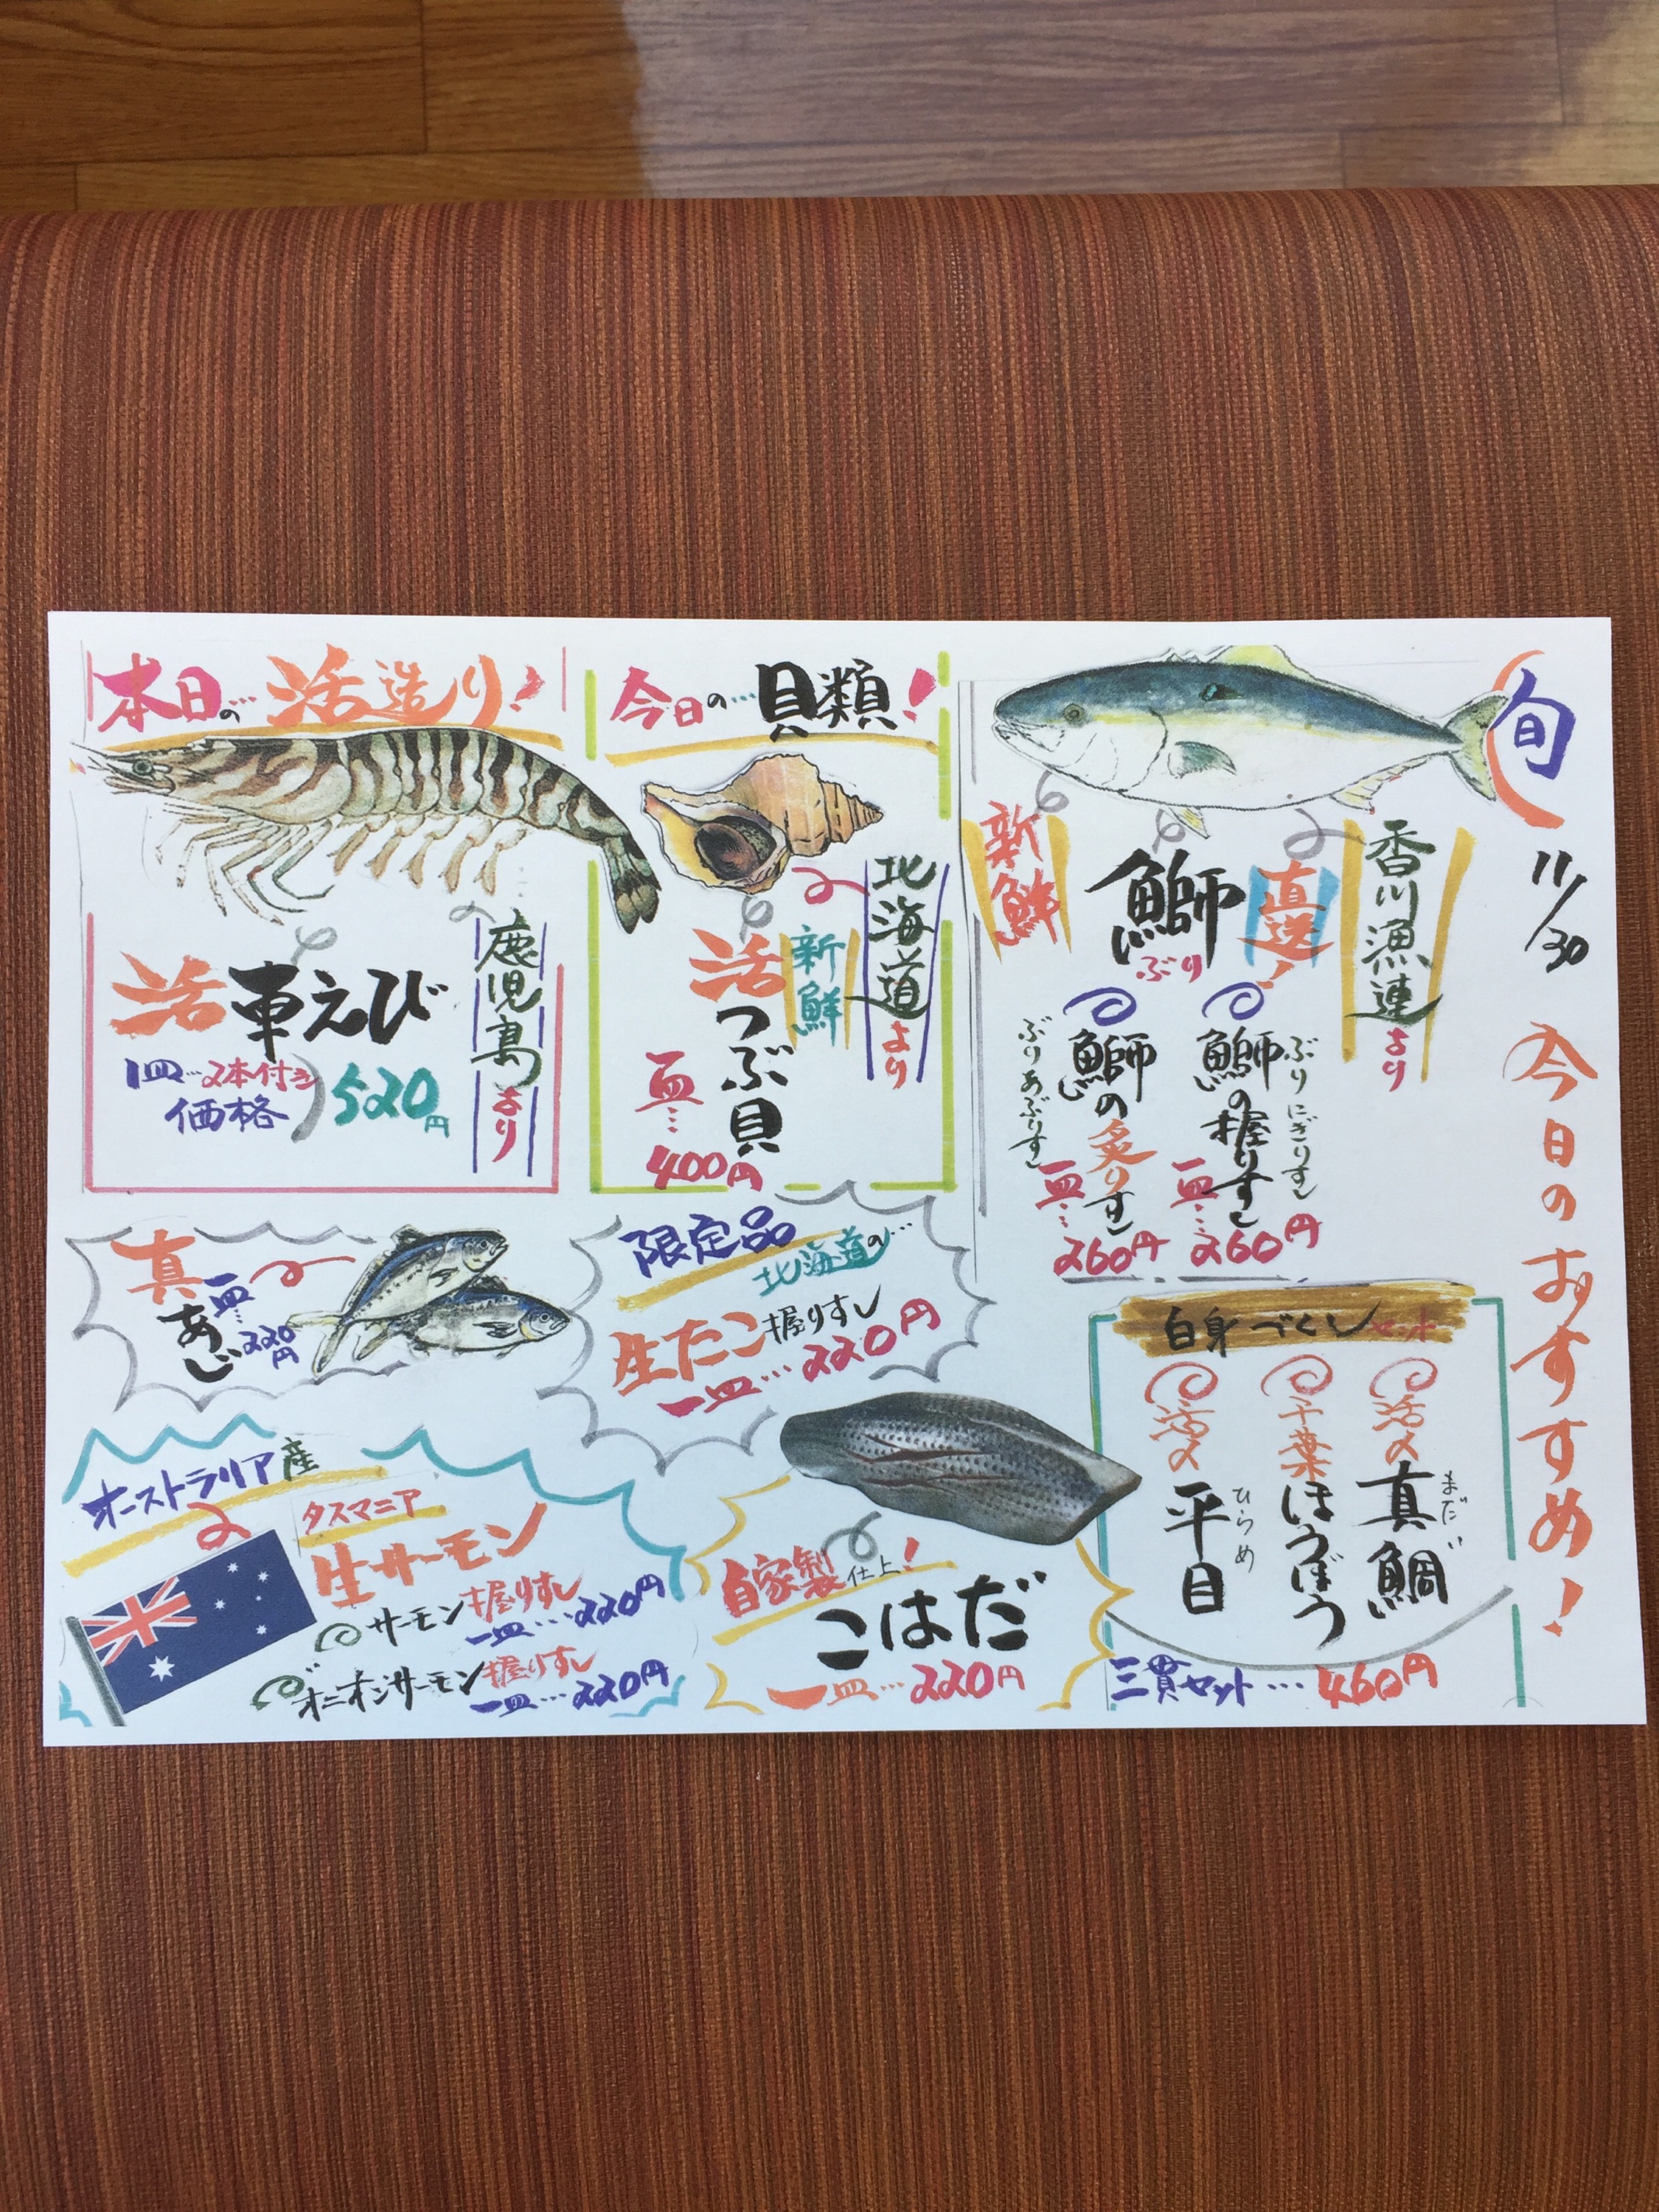 旬
11/30
今日のおすすめ！
香川漁連より
直送！
新鮮
鰤
ぶり
鰤の握りすし
ぶりにぎりすし
一皿…260円
鰤の炙りすし
ぶりあぶりすし
一皿…260円
今日の…貝類！
北海道より
新鮮
活つぶ貝
一皿…
400円
本日の…活造り！
鹿児島より
活車えび
1皿…2本付き
価格
520円
白身づくしセット
活〆真鯛
まだい
千葉ほうぼう
活〆平目
ひらめ
三貫セット…460円
限定品
北海道の…
生たこ握りすし
一皿…220円
真あじ
一皿…220円
自家製仕上！
こはだ
一皿…220円
オーストラリア産
タスマニア
生サーモン
サーモン握りすし
一皿…220円
オニオンサーモン握りすし
一皿…220円